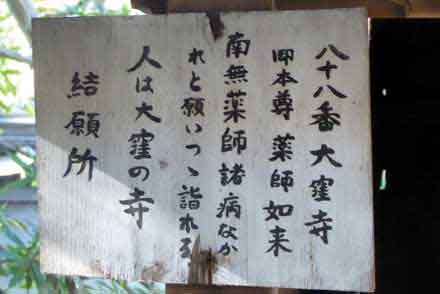 八十八番 大窪寺
御本尊 薬師如来
南無薬師諸病なか
れと願いつゝ詣れる
人は大窪の寺
結願所